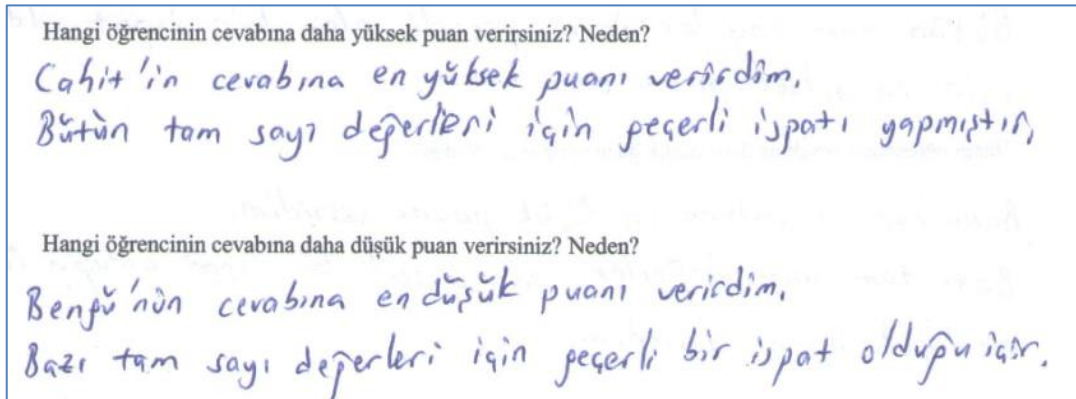 Hangi öğrencinin cevabına daha yüksek puan verirsiniz? Neden?
Cahit'in cevabına en yüksek puanı verirdim.
Bütün tam sayı değerleri için geçerli ispatı yapmıştır.
Hangi öğrencinin cevabına daha düşük puan verirsiniz? Neden?
Bengü'nün cevabına en düşük puanı verirdim.
Bazı tam sayı değerleri için geçerli bir ispat olduğu için.